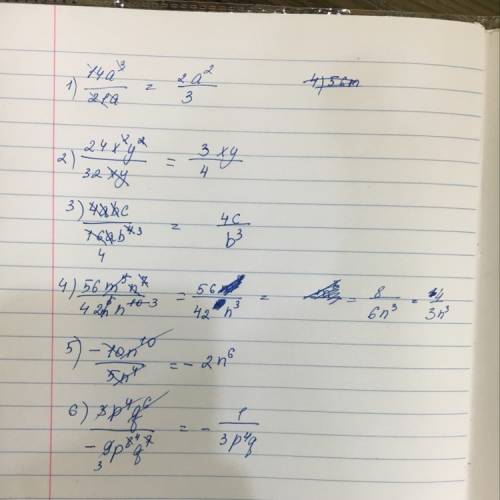 1) 14a³/21a = 2a²/3
4) 56m
2) 24x²y²/32xy = 3xy/4
3) 4abc/16ab⁴ = 4c/b³
4) 56m⁵n⁷/42m⁵n¹⁰ = 56/42n³ = 8/6n³ = 4/3n³
5) -10n¹⁰/5n⁴ = -2n⁶
6) 3p⁴q⁶/-9p⁸q⁷ = -1/3p⁴q